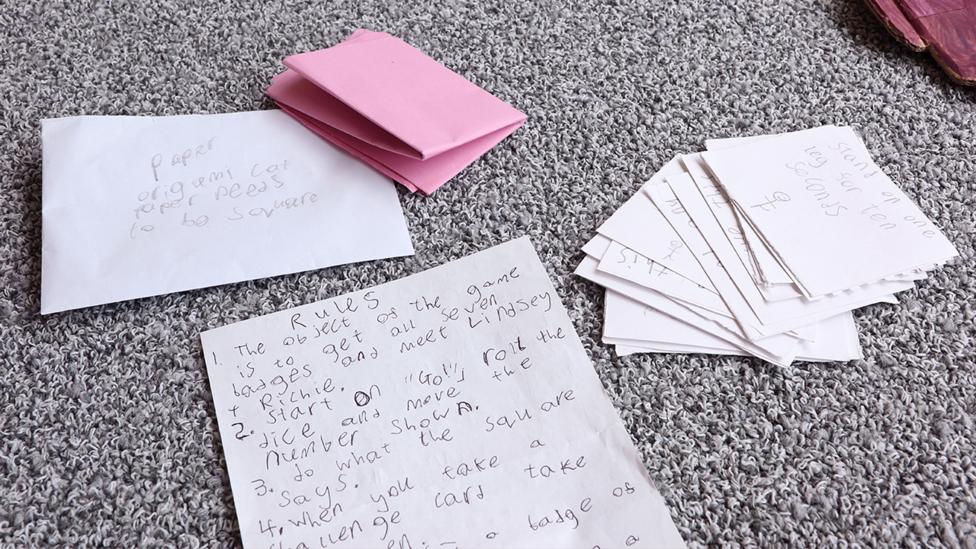 paper
origemi cat
paper needs
to be square
Stand on one
leg for ten
Seconds
RULES
1. The object of the game
is to get all seven
badges and meet Lindsey
+ Richie.
2. Start on "Go!", roll the
dice and move the
number shown.
3. do what the square
says.
4. when you take a
challenge card take
a badge of
a